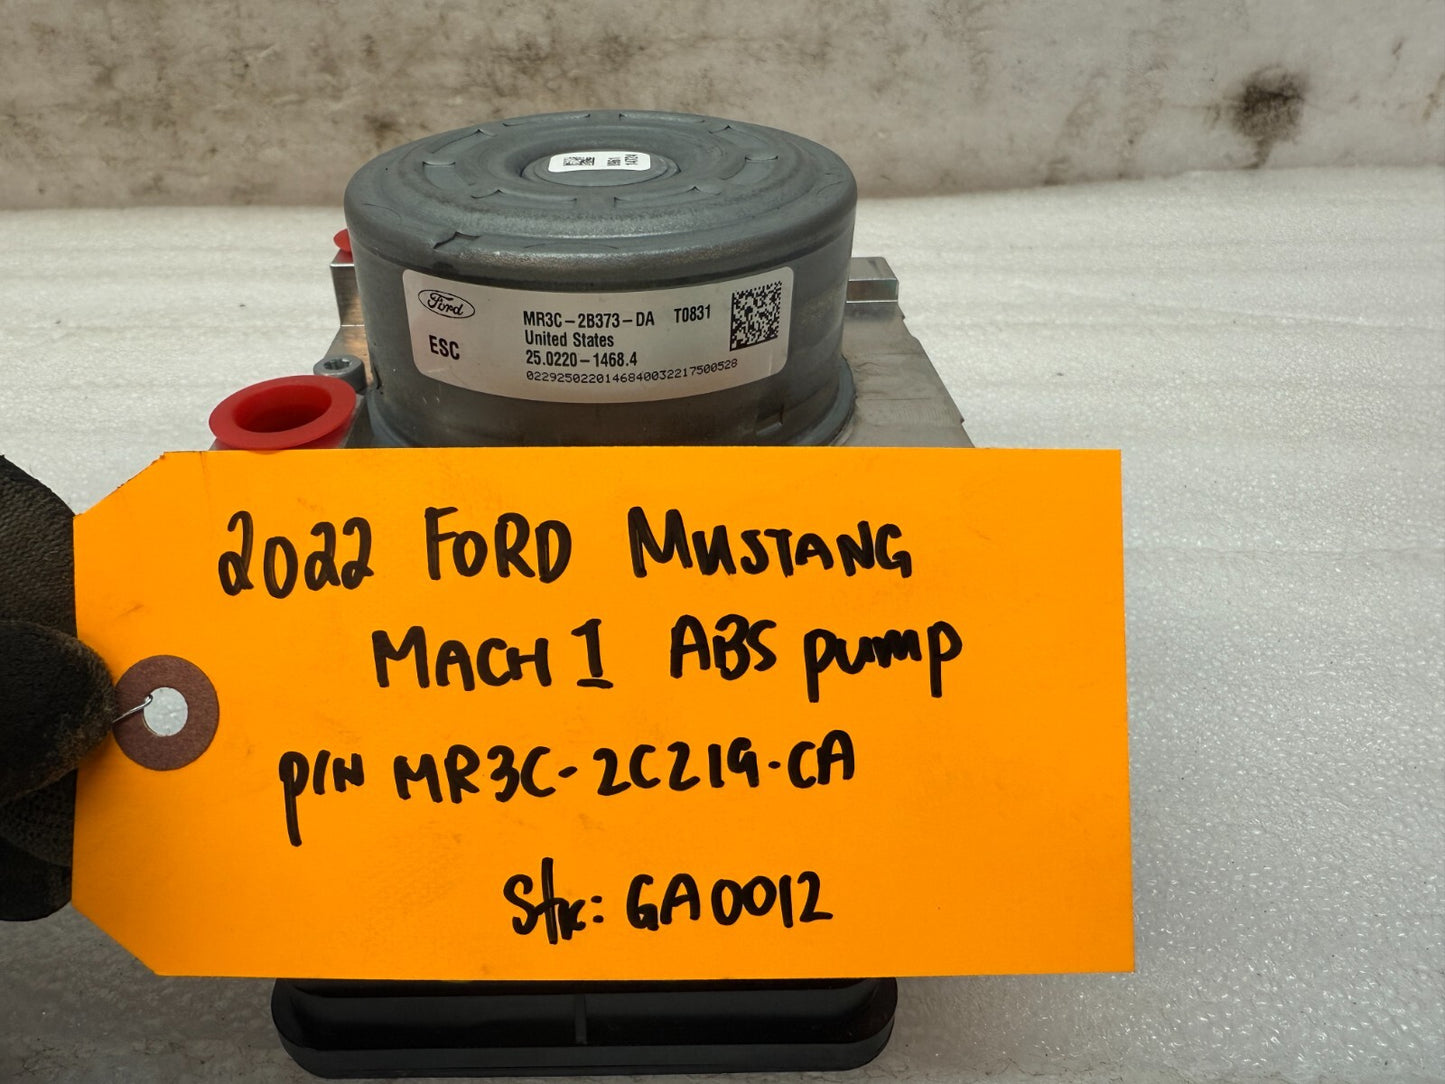 Ford
ESC
MR3C-2B373-DA T0831
United States
25.0220-1468.4
0229250220146840032217500528
2022 FORD MUSTANG
MACH 1 ABS pump
P/N MR3C-2C219-CA
Stk: GA0012